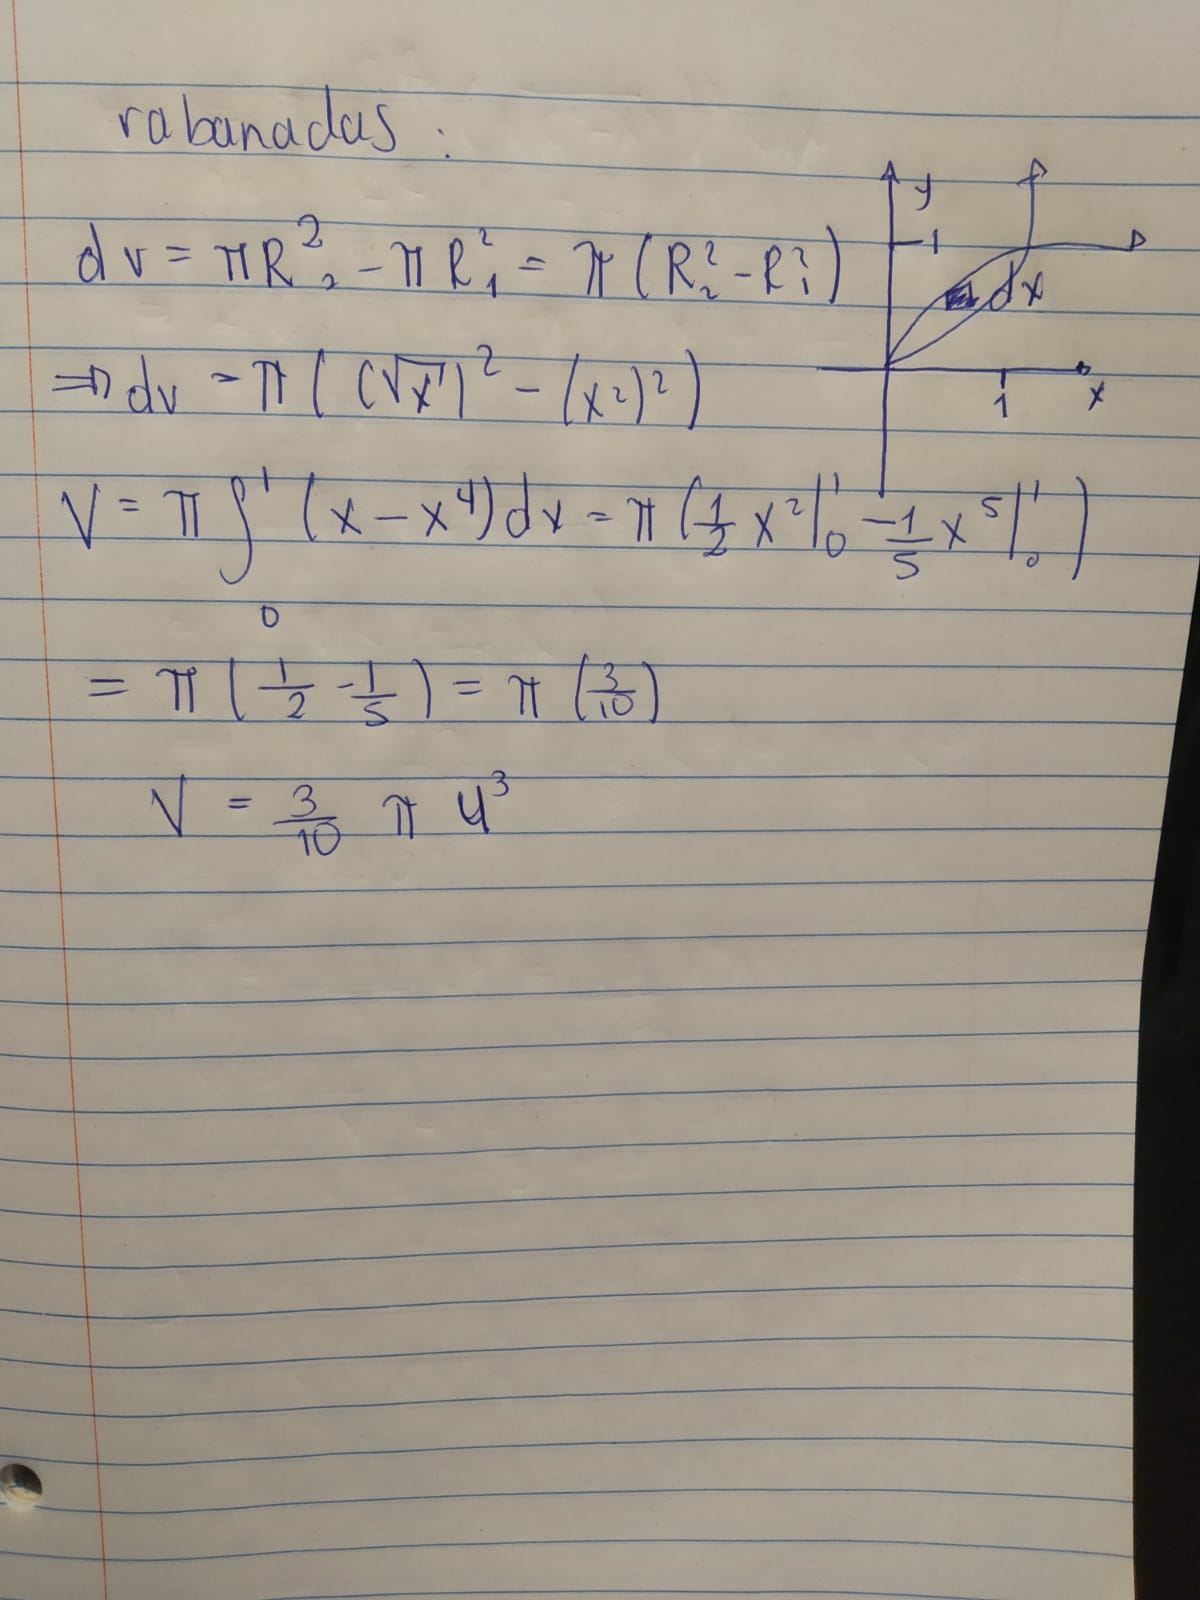 rabanadas :
dv = πR₂² - πR₁² = π(R₂² - R₁²)
⇒ dv = π((√x)² - (x²)²)
V = π∫₀¹ (x - x⁴)dx = π(1/2 x²|₀¹ - 1/5 x⁵|₀¹)
= π(1/2 - 1/5) = π(3/10)
V = 3/10 π u³
y
1
dx
1
x